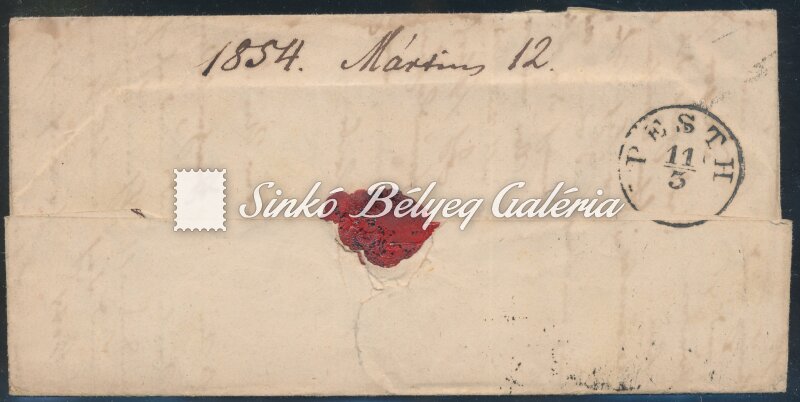 1854. Mártius 12.
PESTH
11
3
Sinkó Bélyeg Galéria